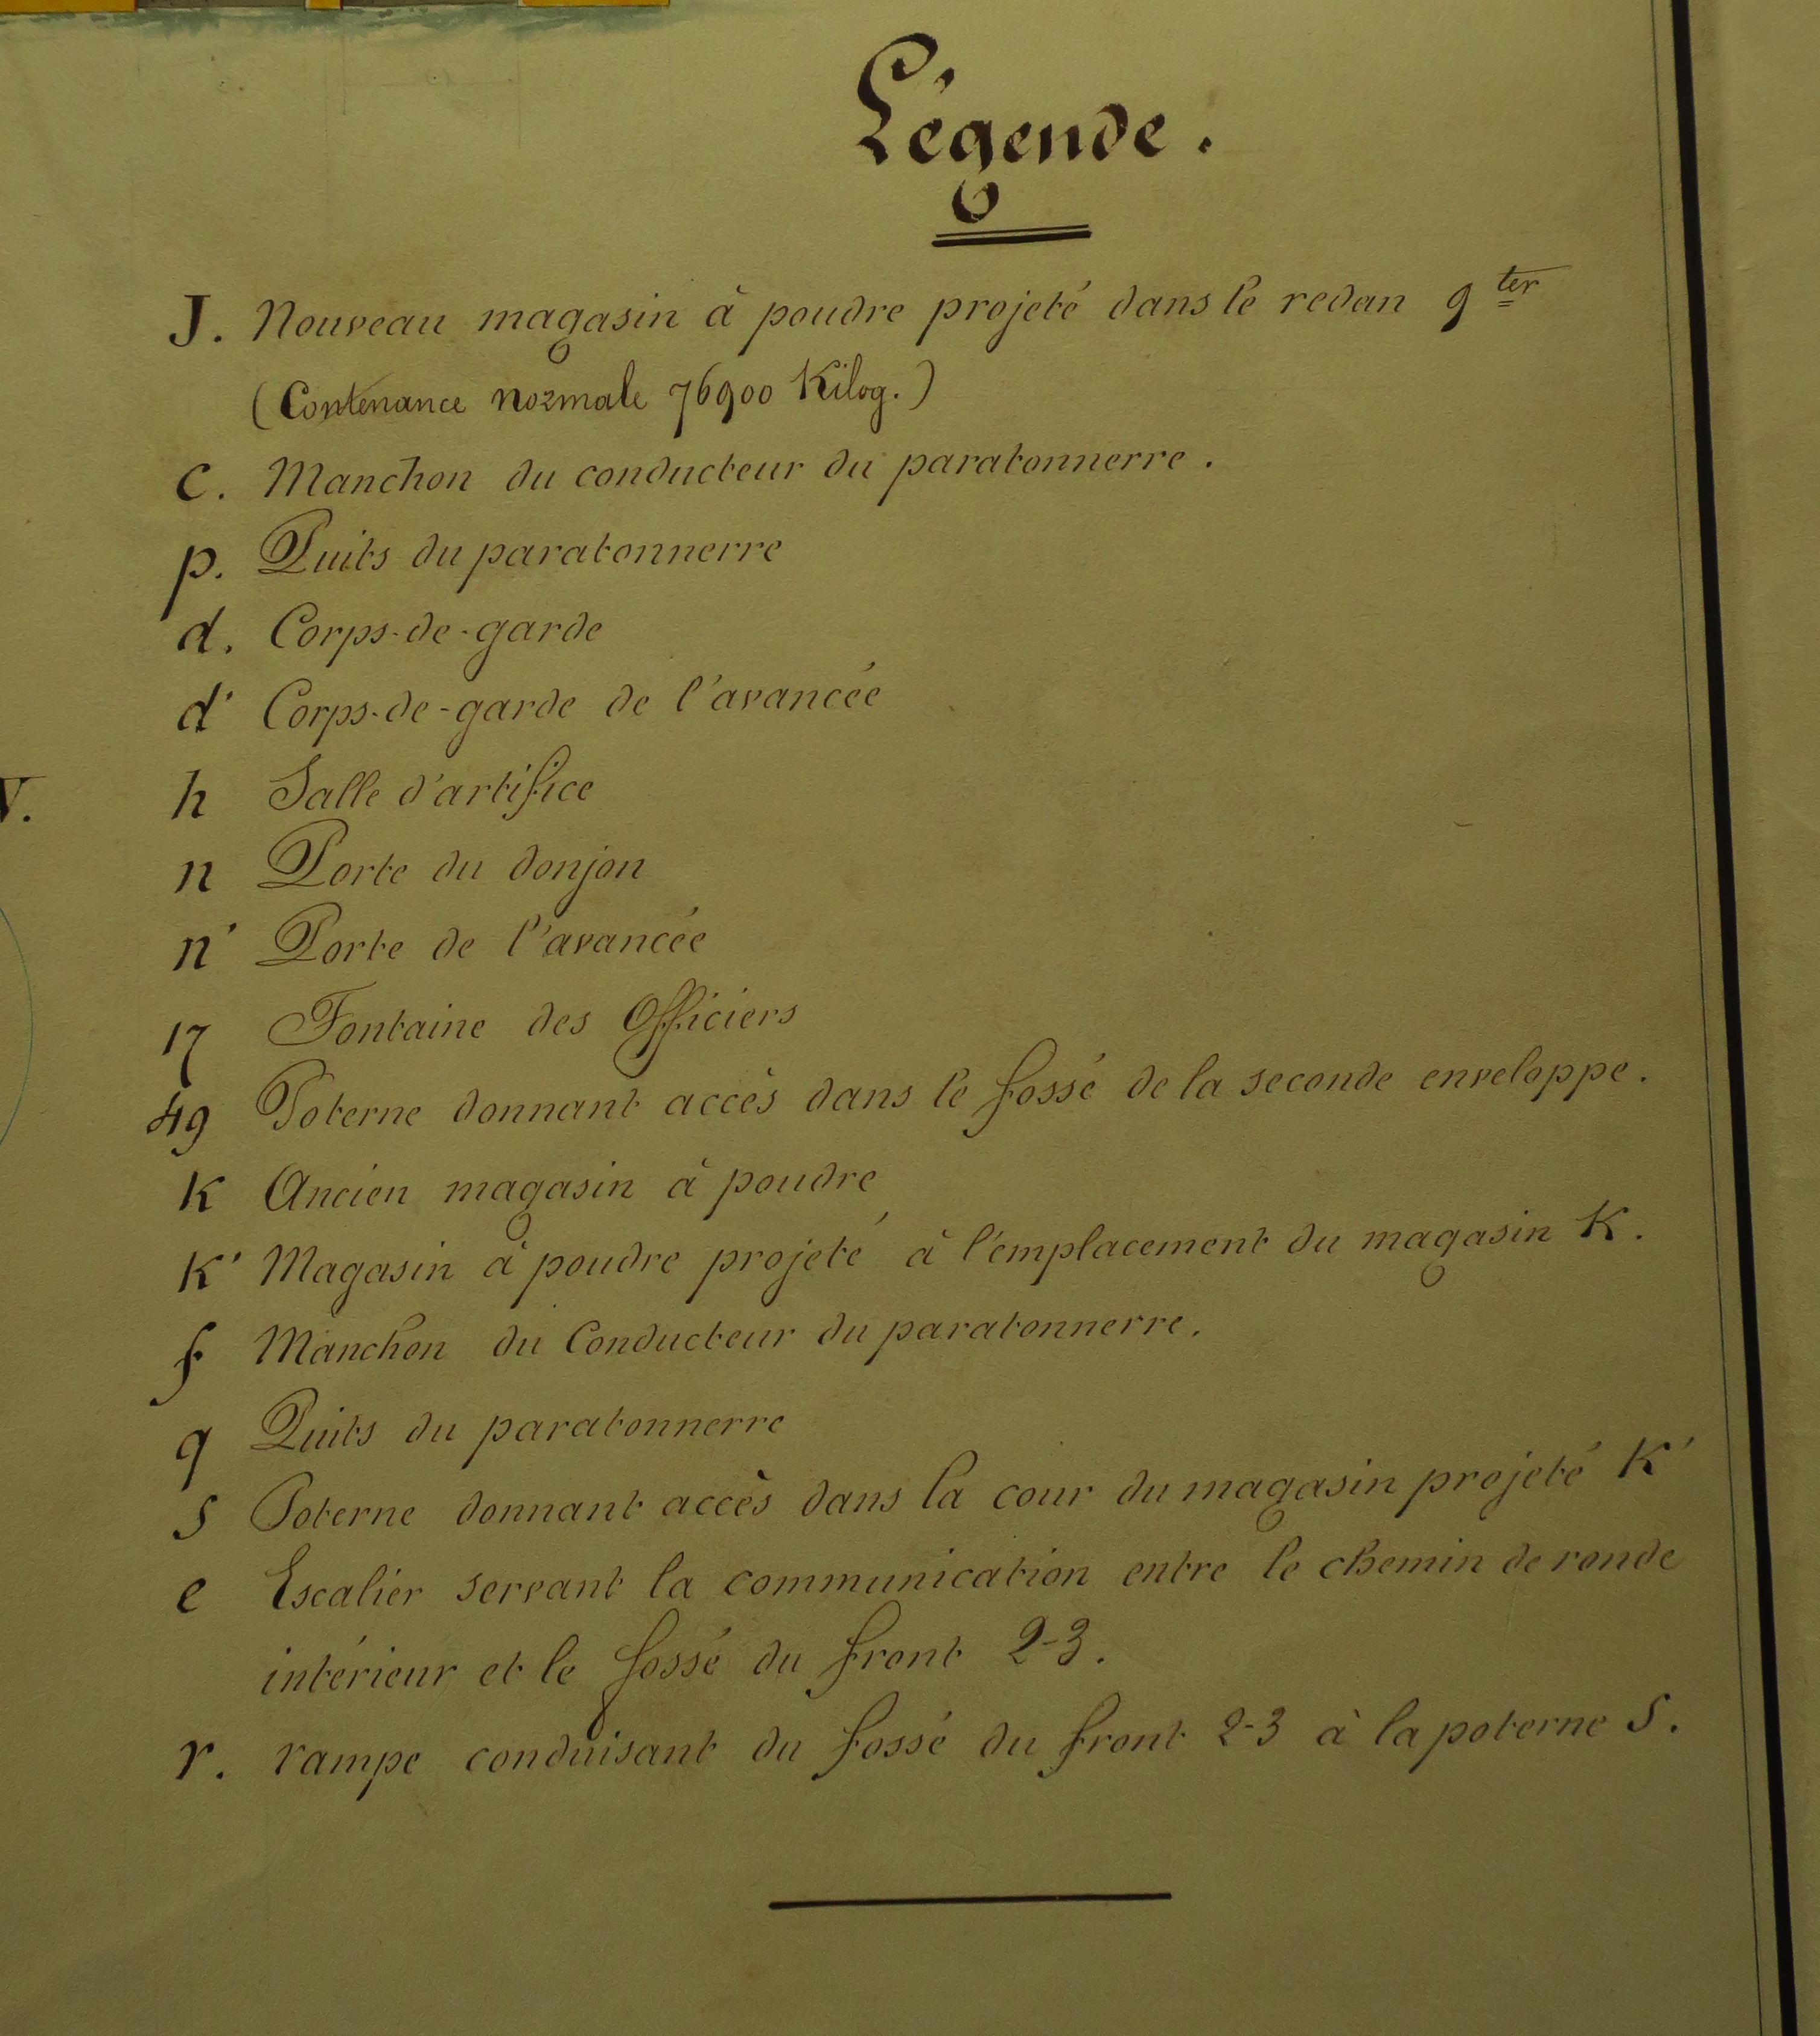 Légende.
J. Nouveau magasin à poudre projeté dans le redan 9 ter
(Contenance normale 76900 Kilog.)
C. Manchon du conducteur du paratonnerre.
p. Puits du paratonnerre
d. Corps-de-garde
d' Corps-de-garde de l'avancée
h Salle d'artifice
V.
n Porte du donjon
n' Porte de l'avancée
17 Fontaine des Officiers
49 Poterne donnant accès dans le fossé de la seconde enveloppe.
K Ancien magasin à poudre
K' Magasin à poudre projeté à l'emplacement du magasin K.
f Manchon du Conducteur du paratonnerre.
q Puits du paratonnerre
S Poterne donnant accès dans la cour du magasin projeté K'
e Escalier servant la communication entre le chemin de ronde
intérieur et le fossé du front 2-3.
r. rampe conduisant du fossé du front 2-3 à la poterne S.